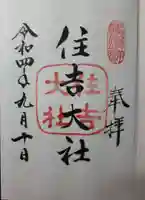 奉拝
住吉大社
住吉
大社
令和四年九月十日